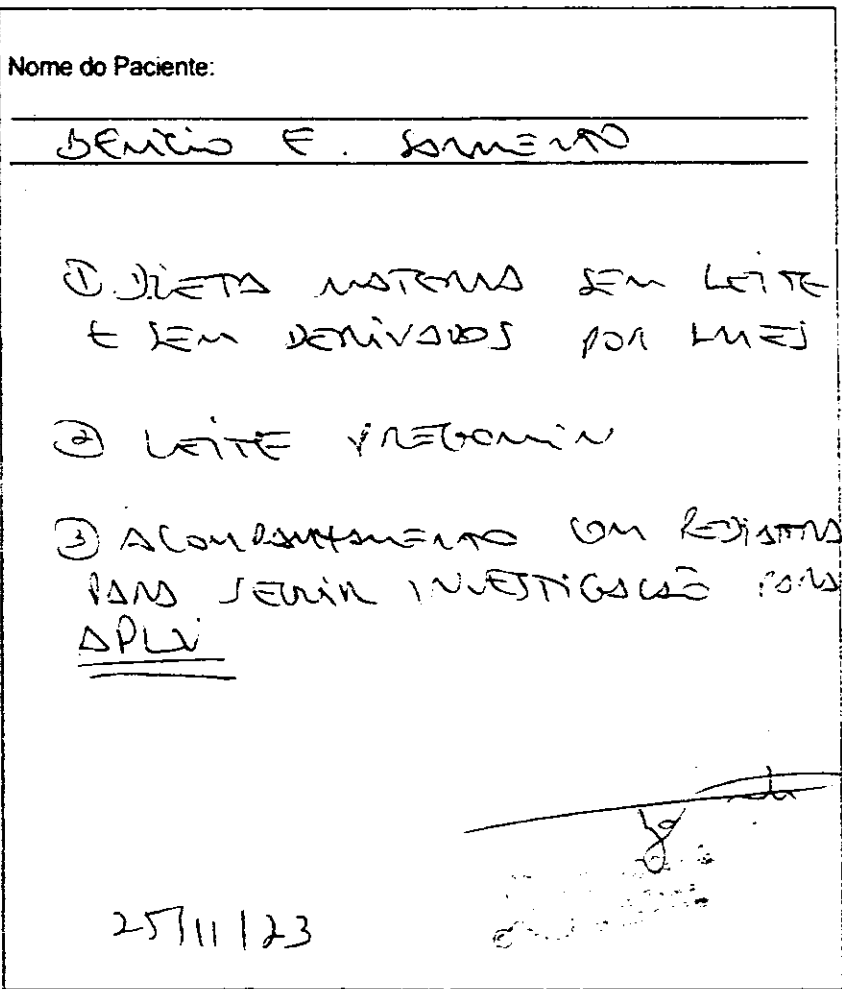 Nome do Paciente:
DENICIO E. SARMENTO
① DIETA MATERNA SEM LEITE
E SEM DERIVADOS POR 1 MES
② LEITE PREGOMIN
③ ACOMPANHAMENTO COM PEDIATRA
PARA SEGUIR INVESTIGAÇÃO PARA
APLV
25/11/23